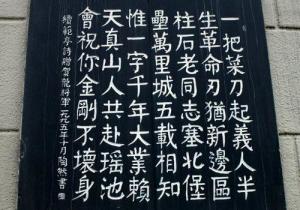 一把菜刀起義人半
生革命刃猶新邊區
柱石老同志塞北堡
壘萬里城五載相知
惟一字千年大業賴
天真山人共赴瑶池
會祝你金剛不壞身
續範亭詩贈賀龍將軍一九九五年十月陶然書